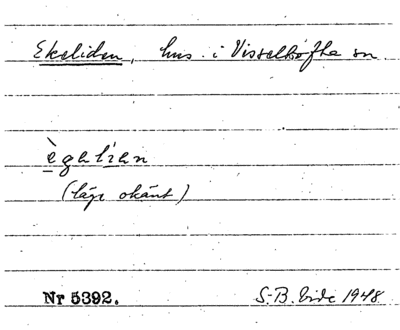 Ekeliden, hus i Visseltofta sn
ègalìan
(läge okänt)
Nr 5392. S.-B. Vide 1948